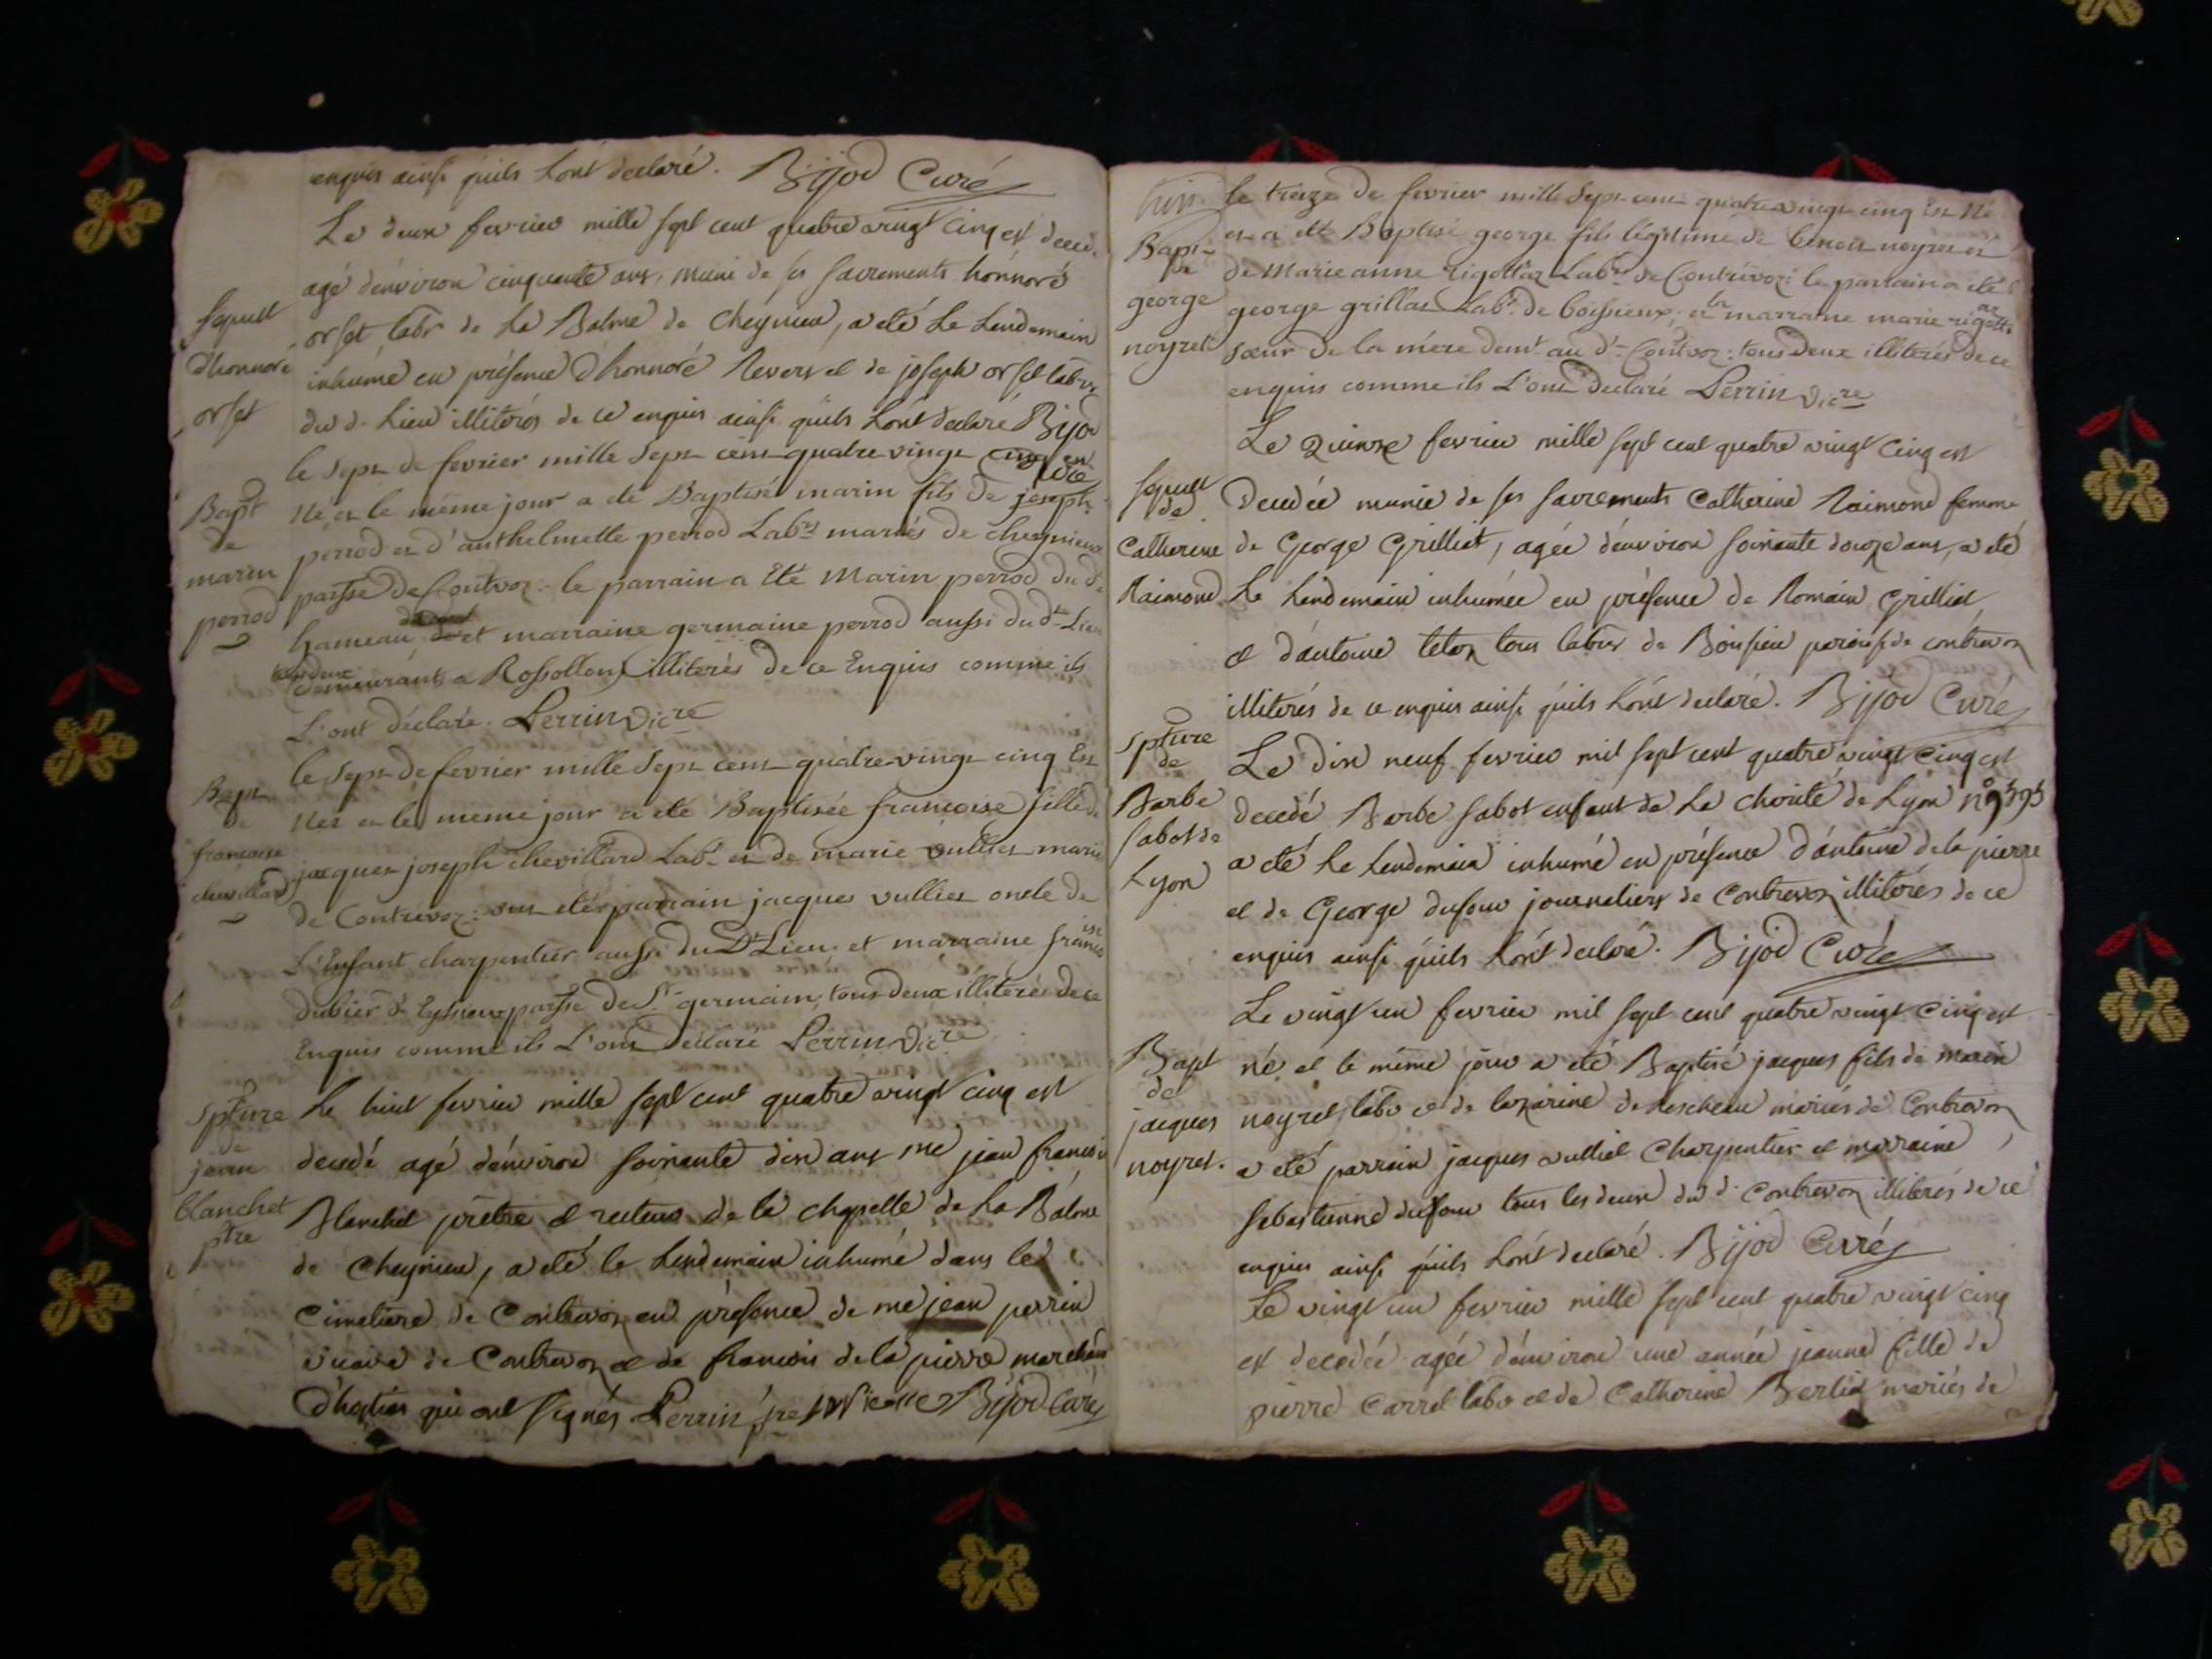 enquis ainsi quils Lont declaré. Bijod Curé
Le deux fevrier mille sept cent quatre vingt cinq est decedé
agé denviron cinquante ans, muni de ses sacrements honnoré
sepult
dhonnoré
orset
orset labr de La Balme de Cheynieu, a eté Le Lendemain
inhumé en présence d'honnoré Reverset de joseph orset labrs
du d. Lieu illiterés de ce enquis ainsi quils Lont declaré Bijod
Curé
le sept de fevrier mille sept cent quatre vingt cinq est
Bapt
de
marin
perrod
Né, et le même jour a eté Baptisé marin fils de joseph
perrod et d'anthelmette perrod Labrs mariés de cheynieux
parsse de Contrvoz. le parrain a Eté Marin perrod du dt
hameau et marraine germaine perrod aussi du dt Lieu
tous deux
demeurants a Rossollon illiterés de ce Enquis comme ils
L'ont declaré. Perrin Vicre
le sept de fevrier mille sept cent quatre-vingt cinq Est
Bapt
de
francoise
chevillard
Née et le meme jour a eté Baptisée francoise fille de
jacques joseph chevillard Labr et de marie vulliet mariés
de Contrevoz: ont eté parrain jacques vulliet oncle de
L'Enfant charpentier aussi du Dt Lieu et marraine francoise
dubier d' parsse de St germain, tous deux illiterés de ce
Enquis comme ils L'ont declaré Perrin Vicre
Spture
de
jean
blanchet
ptre
Le huit fevrier mille sept cent quatre vingt cinq est
decedé agé denviron soixante dix ans me jean francois
Blanchet prêtre et recteur de la chapelle de La Balme
de Cheynieu, a eté le Lendemain inhumé dans le
Cimetiere de Contrevoz en présence de me jean perrin
vicaire de Contrevoz et de francois de la pierre marchand
d'hostias qui ont signés Perrin ptre Bijod Curé
le treize de fevrier mille sept cent quatre vingt cinq Est Né
Bapt
de
george
noyret
et a eté Baptisé george fils légitime de benoit noyret et
de Marie anne rigottaz Labrs de Contrevoz: le parrain a eté
george grillat Labr de boissieux; et la marraine marie rigottaz
sœur de la mére demt au dt Contvoz: tous Deux illiterés de ce
enquis comme ils L'ont declaré Perrin Vicre
Le Quinze fevrier mille sept cent quatre vingt Cinq est
sepult
de
Catherine
Raimond
decedée munie de ses sacrements Catherine Raimond femme
de George Grilliet, agée denviron soixante douze ans, a eté
Le Lendemain inhumée en présence de Romain Grilliet
et d'antoine teton tous labrs de Boissieu paroisse de contrevoz
illiterés de ce enquis ainsi quils Lont declaré. Bijod Curé
Spture
de
Barbe
Sabot de
Lyon
Le dix neuf fevrier mil sept cent quatre vingt Cinq est
decedé Barbe Sabot enfant de La charité de Lyon
a eté Le Lendemain inhumé en présence d'antoine de la pierre
et de George dufour journaliers de Contrevoz illiterés de ce
enquis ainsi quils Lont declaré. Bijod Curé
Le vingt un fevrier mil sept cent quatre vingt Cinq est
Bapt
de
jacques
noyret.
né et le même jour a eté Baptisé jacques fils de marin
noyret labr et de lazarine de Lescheau mariés de Contrevoz
a eté parrain jacques vulliet Charpentier et marraine
Sebastienne dufour tous les deux du d. Contrevoz illiterés de ce
enquis ainsi quils Lont declaré. Bijod Curé
Le vingt un fevrier mille sept cent quatre vingt cinq
est decedée agée denviron une année jeanne fille de
pierre Carrel labr et de Catherine Berlid mariés de